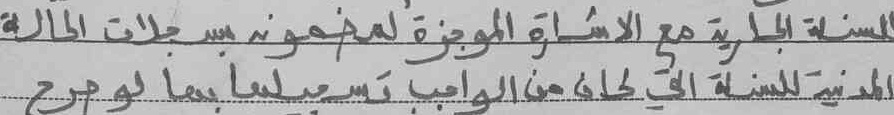 للسنة الجارية مع الاشارة الموجزة لمضمونه بسجلات الحالة
المدنية للسنة التي كان من الواجب تسجيلها بها لو صرح